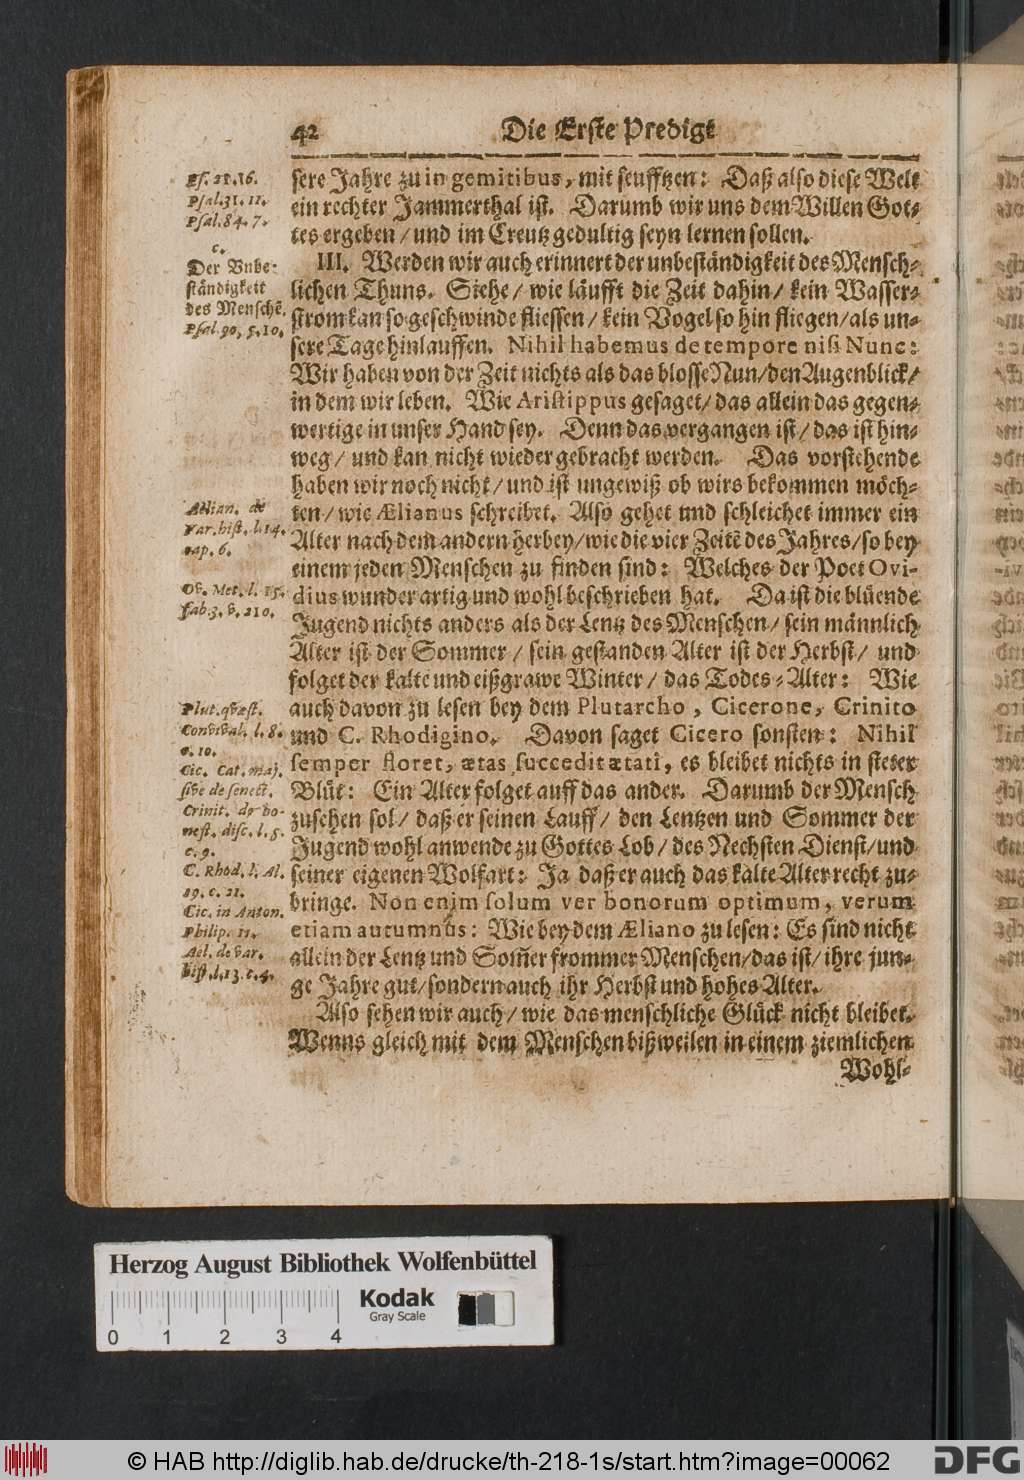 42 Die Erste Predigt
Ps. 21. 16.
Psal. 31. 11.
Psal. 84. 7.
c.
Der Vnbe-
ständigkeit
des Menschẽ.
Psal. 90, 5. 10.
Ælian. de
Var. hist. l. 14.
cap. 6.
Ov. Met. l. 15.
fab. 3. v. 210.
Plut. quæst.
Convival. l. 8.
c. 10.
Cic. Cat. maj.
sive de senect.
Crinit. de ho-
nest. disc. l. 5.
c. 9.
C. Rhod. l. Al.
19. c. 21.
Cic. in Anton.
Philip. 11.
Ael. de var.
hist. l. 13. c. 4.
sere Jahre zu in gemitibus, mit seufftzen: Daß also diese Welt
ein rechter Jammerthal ist. Darumb wir uns dem Willen Got-
tes ergeben / und im Creutz gedultig seyn lernen sollen.
III. Werden wir auch erinnert der unbeständigkeit des Mensch-
lichen Thuns. Siehe / wie läufft die Zeit dahin / kein Wasser-
strom kan so geschwinde fliessen / kein Vogel so hin fliegen / als un-
sere Tage hinlauffen. Nihil habemus de tempore nisi Nunc:
Wir haben von der Zeit nichts als das blosse Nun / den Augenblick /
in dem wir leben. Wie Aristippus gesaget / das allein das gegen-
wertige in unser Hand sey. Denn das vergangen ist / das ist hin-
weg / und kan nicht wieder gebracht werden. Das vorstehende
haben wir noch nicht / und ist ungewiß ob wirs bekommen möch-
ten / wie Ælianus schreibet. Also gehet und schleichet immer ein
Alter nach dem andern herbey / wie die vier Zeitẽ des Jahres / so bey
einem jeden Menschen zu finden sind: Welches der Poet Ovi-
dius wunder artig und wohl beschrieben hat. Da ist die blüende
Jugend nichts anders als der Lentz des Menschen / sein männlich
Alter ist der Sommer / sein gestanden Alter ist der Herbst / und
folget der kalte und eißgrawe Winter / das Todes-Alter: Wie
auch davon zu lesen bey dem Plutarcho, Cicerone, Crinito
und C. Rhodigino. Davon saget Cicero sonsten: Nihil
semper floret, ætas succedit ætati, es bleibet nichts in steter
Blüt: Ein Alter folget auff das ander. Darumb der Mensch
zusehen sol / daß er seinen Lauff / den Lentzen und Sommer der
Jugend wohl anwende zu Gottes Lob / des Nechsten Dienst / und
seiner eigenen Wolfart: Ja daß er auch das kalte Alter recht zu-
bringe. Non enim solum ver bonorum optimum, verum
etiam autumnus: Wie bey dem Æliano zu lesen: Es sind nicht
allein der Lentz und Som̃er frommer Menschen / das ist / ihre jun-
ge Jahre gut / sondern auch ihr Herbst und hohes Alter.
Also sehen wir auch / wie das menschliche Glück nicht bleibet.
Wenns gleich mit dem Menschen bißweilen in einem ziemlichen
Wohl-
Herzog August Bibliothek Wolfenbüttel
Kodak
Gray Scale
0 1 2 3 4
© HAB http://diglib.hab.de/drucke/th-218-1s/start.htm?image=00062
DFG